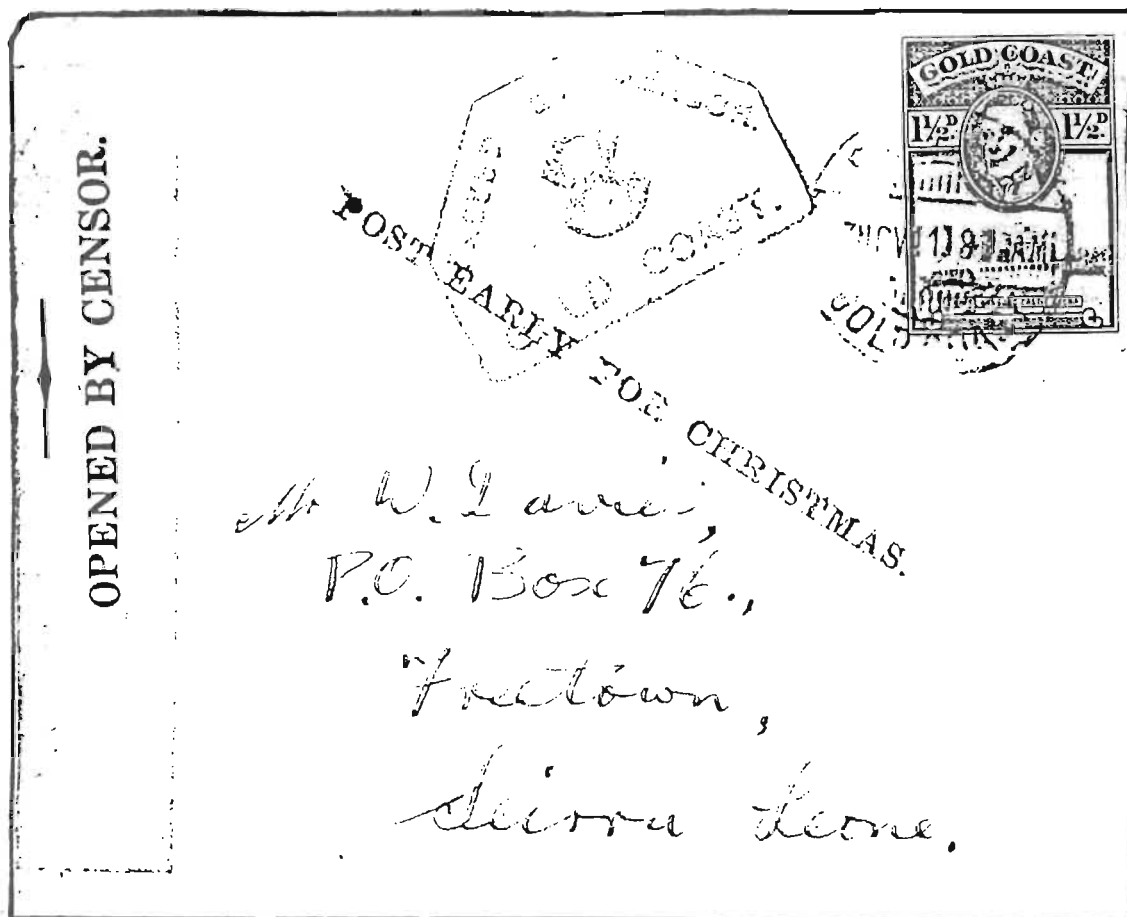 OPENED BY CENSOR.
GOLD COAST.
1½D. 1½D.
COAST.
POST EARLY FOR CHRISTMAS.
Mr W. Davies,
P.O. Box 76.,
Freetown,
Sierra Leone.